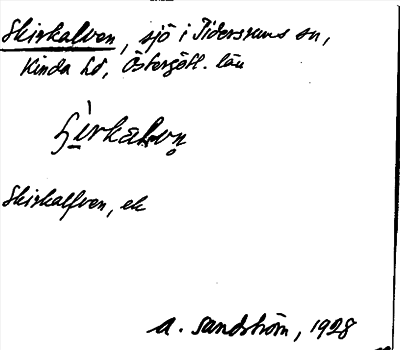 Skirkalven, sjö i Tidersrums sn,
Kinda hd, Östergötl. län
Skirkalfven, ek
A. Sandström, 1928